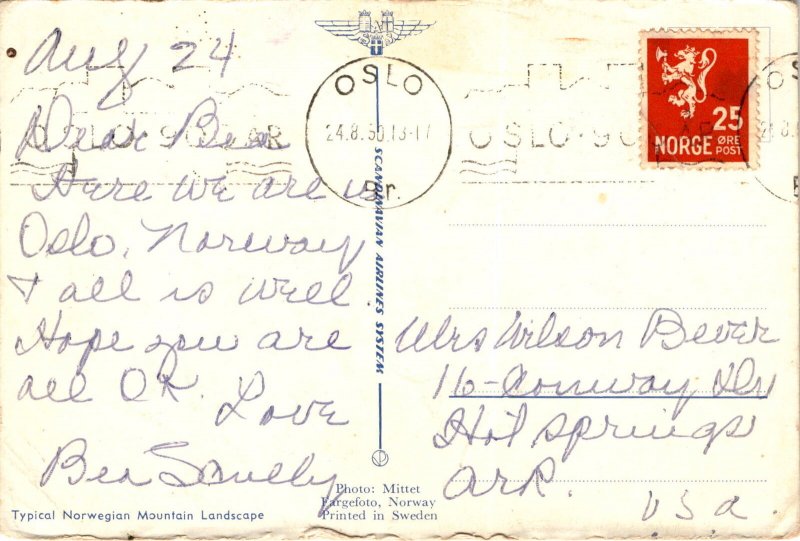 Aug 24
Dear Bea
Here we are in
Oslo, Norway
& all is well.
Hope you are
all OK.
Love
Bea
OSLO
24.8.50.13-17
Br.
OSLO 900 ÅR
SCANDINAVIAN AIRLINES SYSTEM
25
NORGE ØRE
POST
Mrs Wilson Bever
16-Conway
Hot Springs
Ark.
USA
Photo: Mittet
Fargefoto, Norway
Printed in Sweden
Typical Norwegian Mountain Landscape